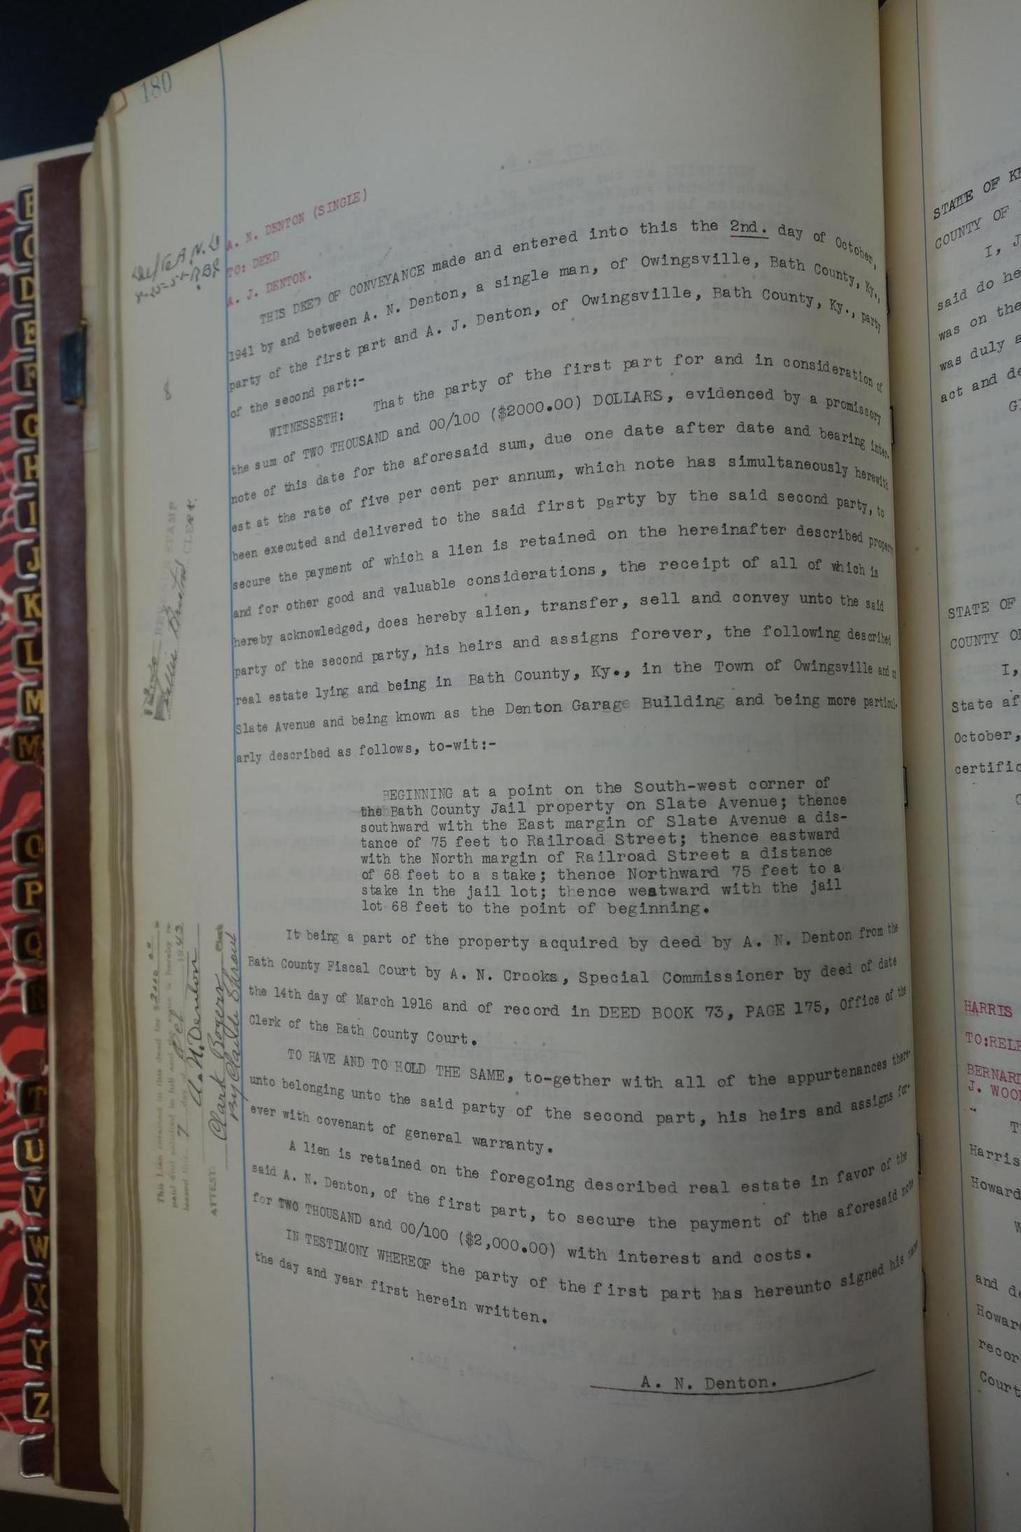 180
A. N. DENTON (SINGLE)
TO: DEED
A. J. DENTON.
THIS DEED OF CONVEYANCE made and entered into this the 2nd. day of October,
1941 by and between A. N. Denton, a single man, of Owingsville, Bath County, Ky.,
party of the first part and A. J. Denton, of Owingsville, Bath County, Ky., party
of the second part:-
WITNESSETH: That the party of the first part for and in consideration of
the sum of TWO THOUSAND and 00/100 ($2000.00) DOLLARS, evidenced by a promissory
note of this date for the aforesaid sum, due one date after date and bearing inter-
est at the rate of five per cent per annum, which note has simultaneously herewith
been executed and delivered to the said first party by the said second party, to
secure the payment of which a lien is retained on the hereinafter described property
and for other good and valuable considerations, the receipt of all of which is
hereby acknowledged, does hereby alien, transfer, sell and convey unto the said
party of the second party, his heirs and assigns forever, the following described
real estate lying and being in Bath County, Ky., in the Town of Owingsville and on
Slate Avenue and being known as the Denton Garage Building and being more particul-
arly described as follows, to-wit:-
BEGINNING at a point on the South-west corner of
the Bath County Jail property on Slate Avenue; thence
southward with the East margin of Slate Avenue a dis-
tance of 75 feet to Railroad Street; thence eastward
with the North margin of Railroad Street a distance
of 68 feet to a stake; thence Northward 75 feet to a
stake in the jail lot; thence westward with the jail
lot 68 feet to the point of beginning.
It being a part of the property acquired by deed by A. N. Denton from the
Bath County Fiscal Court by A. N. Crooks, Special Commissioner by deed of date
the 14th day of March 1916 and of record in DEED BOOK 73, PAGE 175, Office of the
Clerk of the Bath County Court.
TO HAVE AND TO HOLD THE SAME, to-gether with all of the appurtenances there-
unto belonging unto the said party of the second part, his heirs and assigns for-
ever with covenant of general warranty.
A lien is retained on the foregoing described real estate in favor of the
said A. N. Denton, of the first part, to secure the payment of the aforesaid note
for TWO THOUSAND and 00/100 ($2,000.00) with interest and costs.
IN TESTIMONY WHEREOF the party of the first part has hereunto signed his name
the day and year first herein written.
A. N. Denton.
This lien retained in this deed for $2000
A. N. Denton
ATTEST: Clark Rogers Clerk
STATE OF
COUNTY OF
I, J
said do he
was on the
was duly a
act and de
STATE OF
COUNTY OF
I,
State af
October,
certific
HARRIS
TO:RELE
BERNARD
J. WOOD
Harris
Howard
and de
Howar
recor
Court
B
C
D
E
F
G
H
I
J
K
L
M
M
O
P
Q
R
T
U
V
W
X
Y
Z